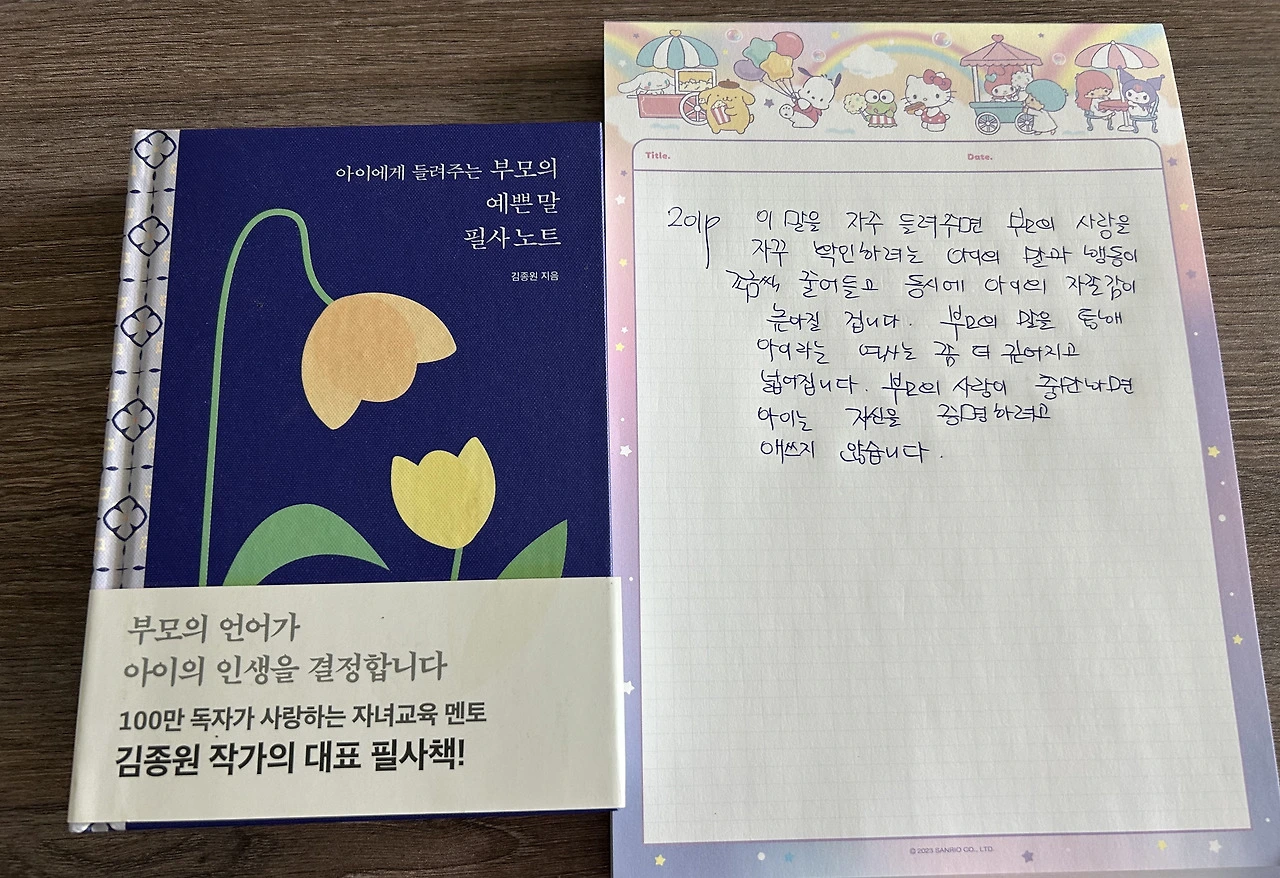 아이에게 들려주는 부모의
예쁜 말
필사 노트
김종원 지음
부모의 언어가
아이의 인생을 결정합니다
100만 독자가 사랑하는 자녀교육 멘토
김종원 작가의 대표 필사책!
Title.
Date.
201p 이 말을 자주 들려주면 부모의 사랑을
자꾸 확인하려는 아이의 말과 행동이
조금씩 줄어들고 동시에 아이의 자존감이
높아질 겁니다. 부모의 말을 통해
아이라는 역사는 좀 더 깊어지고
넓어집니다. 부모의 사랑이 증명되면
아이는 자신을 증명하려고
애쓰지 않습니다.
© 2023 SANRIO CO., LTD.